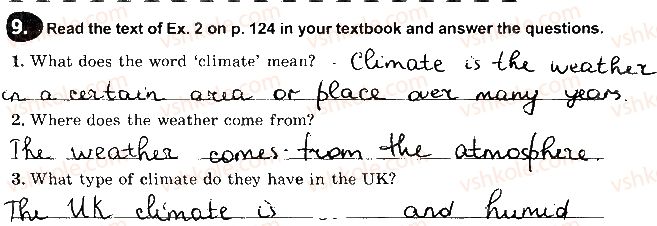 9. Read the text of Ex. 2 on p. 124 in your textbook and answer the questions.
1. What does the word ‘climate’ mean? - Climate is the weather
in a certain area or place over many years.
2. Where does the weather come from?
The weather comes from the atmosphere
3. What type of climate do they have in the UK?
The UK climate is ... and humid